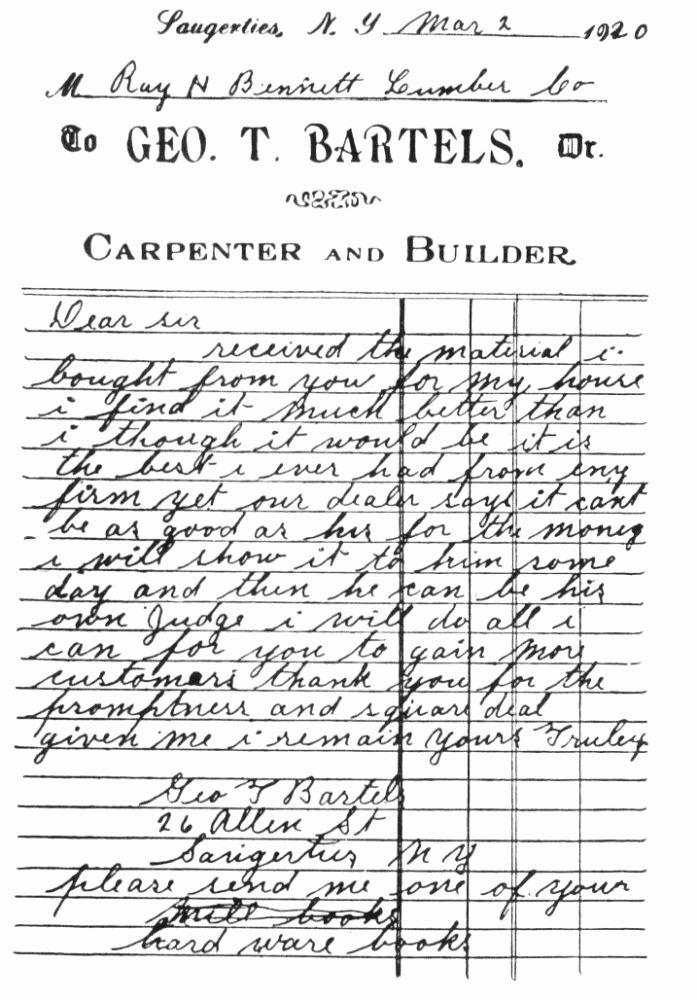 Saugerties, N. Y. Mar 2 1920
M Ray H Bennett Lumber Co
To GEO. T. BARTELS. Dr.
CARPENTER AND BUILDER.
Dear sir
received the material i
bought from you for my house
i find it much better than
i though it would be it is
the best i ever had from eny
firm yet our dealer says it cant
be as good as his for the money
i will show it to him some
day and then he can be his
own Judge i will do all i
can for you to gain more
customers thank you for the
promptness and square deal
given me i remain yours Truley
Geo T Bartels
26 Allen St
Saugerties N Y
please send me one of your
mill books
hard ware books